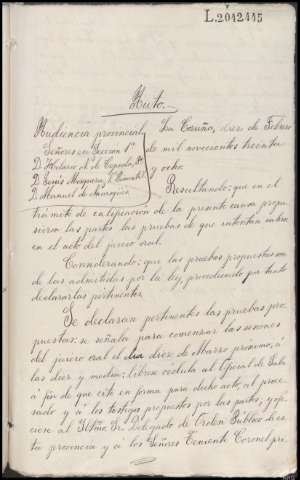 L.2042445
Auto.
Audiencia provincial
Señores en Sección 1ª
D. Hilario N. de Cepeda, Pte
D. Jesús Mosquera
D. Manuel de
La Coruña, diez de Febrero
de mil novecientos treinta
y ocho.
Resultando: que en el
trámite de calificación de la presente causa propu-
sieron las partes las pruebas de que intentan valerse
en el acto del juicio oral.
Considerando: que las pruebas propuestas son
de las admitidas por la ley, procediendo por tanto
declararlas pertinentes
Se declaran pertinentes las pruebas pro-
puestas: se señala para comenzar las sesiones
del juicio oral el día diez de Marzo próximo, á
las diez y media; librese cédula al Oficial de Sala
á fin de que cite en forma para dicho acto al proce-
sado y á los testigos propuestos por las partes, y ofi-
ciese al Iltmo Sr. Delegado de Orden Público de es-
ta provincia y á los Señores Teniente Coronel pri